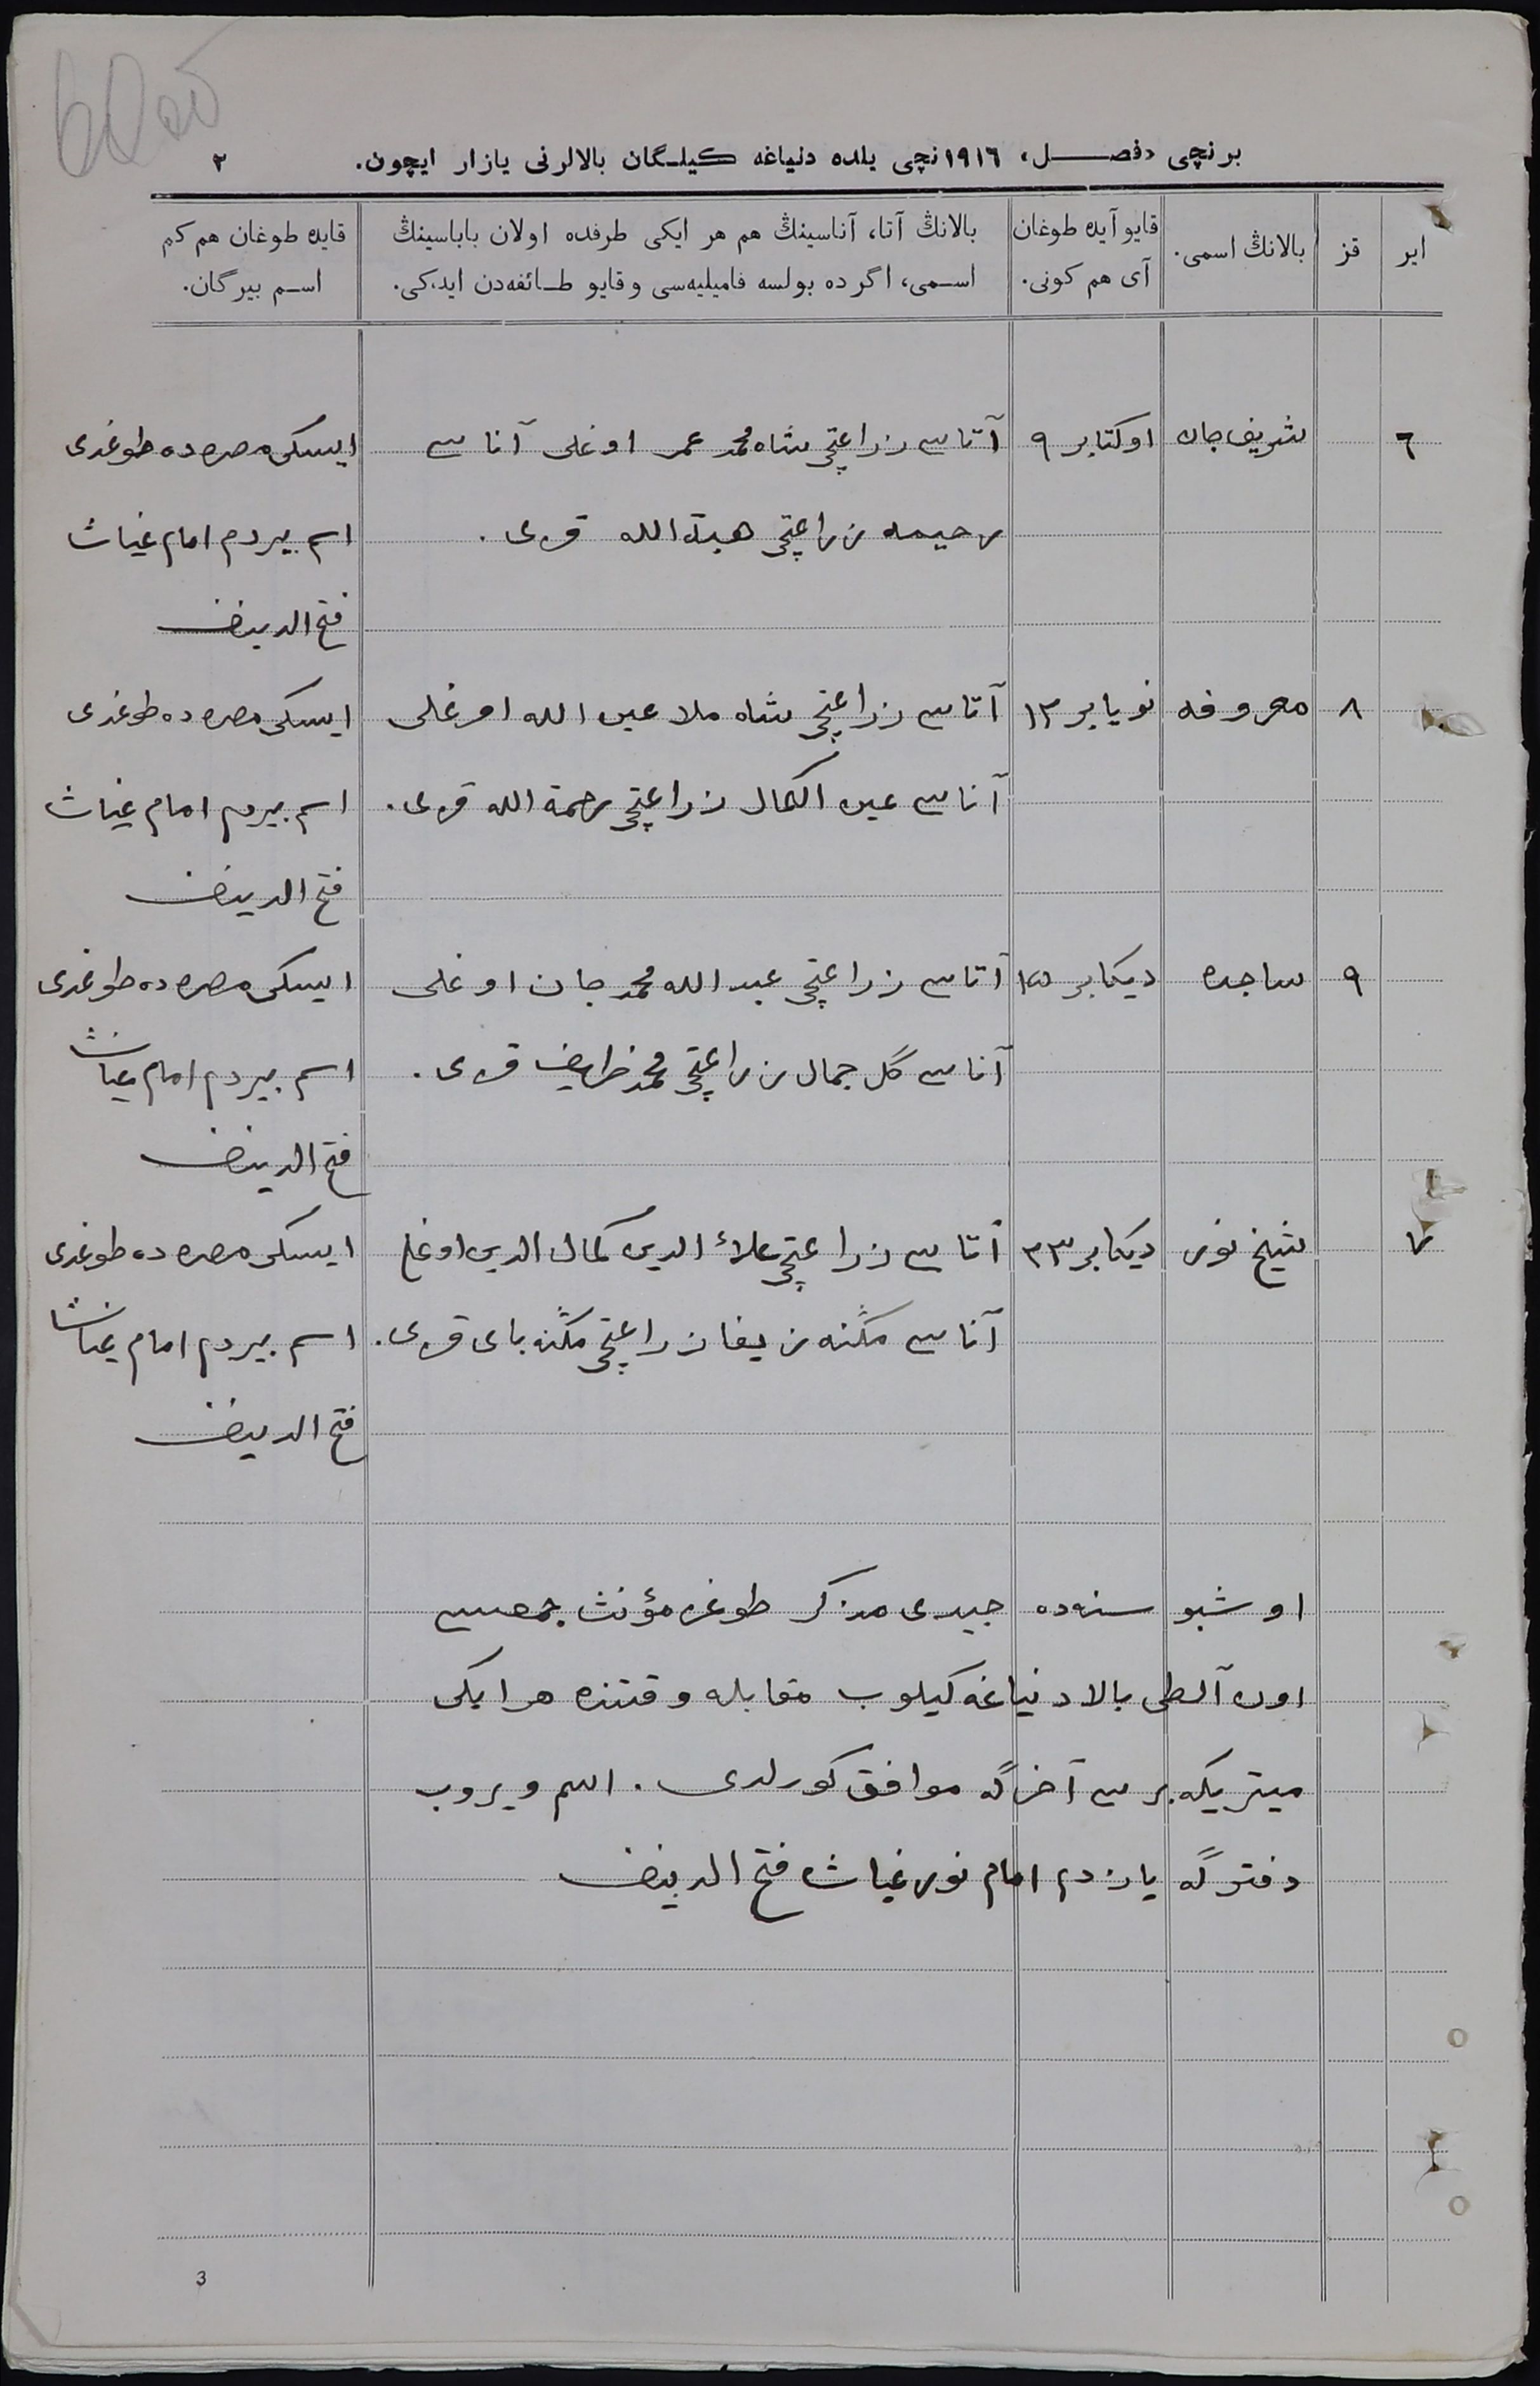 برنچی «فصل» ١٩١٦نچی یلده دنیاغه کیلگان بالالرنی یازار ایچون. ٢
ایر
قز
بالانڭ اسمی.
قایو آیده طوغان
آی هم کونی.
بالانڭ آتا، آناسینڭ هم هر ایکی طرفده اولان باباسینڭ
اسمی، اگر ده بولسه فامیلیه‌سی و قایو طائفه‌دن ایدکی.
قایده طوغان هم کم
اسم بیرگان.
٦ شریف جان اوکتابر ٩ آتاسی زراعتچی شاه محمد عمر اوغلی آناسی ایسکی مصره ده طوغدی
رحیمه زراعتچی هبة الله قزی . اسم بیردم امام غیاث
فتح الدینف
٨ معروفه نویابر ١٣ آتاسی زراعتچی شاه ملا عین الله اوغلی ایسکی مصره ده طوغدی
آناسی عین الکمال زراعتچی رحمة الله قزی . اسم بیردم امام غیاث
فتح الدینف
٩ ساجده دیکابر ١٥ آتاسی زراعتچی عبد الله محمد جان اوغلی ایسکی مصره ده طوغدی
آناسی گل جمال زراعتچی محمد ظریف قزی . اسم بیردم امام غیاث
فتح الدینف
٧ شیخ نور دیکابر ٢٣ آتاسی زراعتچی علاء الدین کمال الدین اوغلی ایسکی مصره ده طوغدی
آناسی مڭنه زیفا زراعتچی مڭنه بای قزی . اسم بیردم امام غیاث
فتح الدینف
اوشبو سنه‌ده جیدی مذکر طوغز مؤنث جمعسی
اون آلطی بالا دنیاغه کیلوب مقابله وقتنده هر ایکی
میتریکه برسی آخرگه موافق کورلدی . اسم ویروب
دفترگه یازدم امام نور غیاث فتح الدینف
3